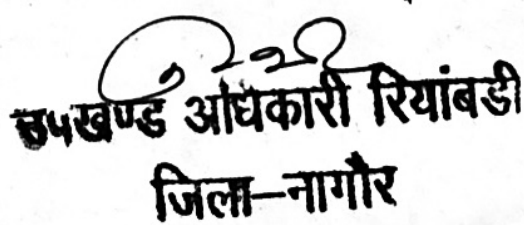 उपखण्ड अधिकारी रियांबडी
जिला-नागौर